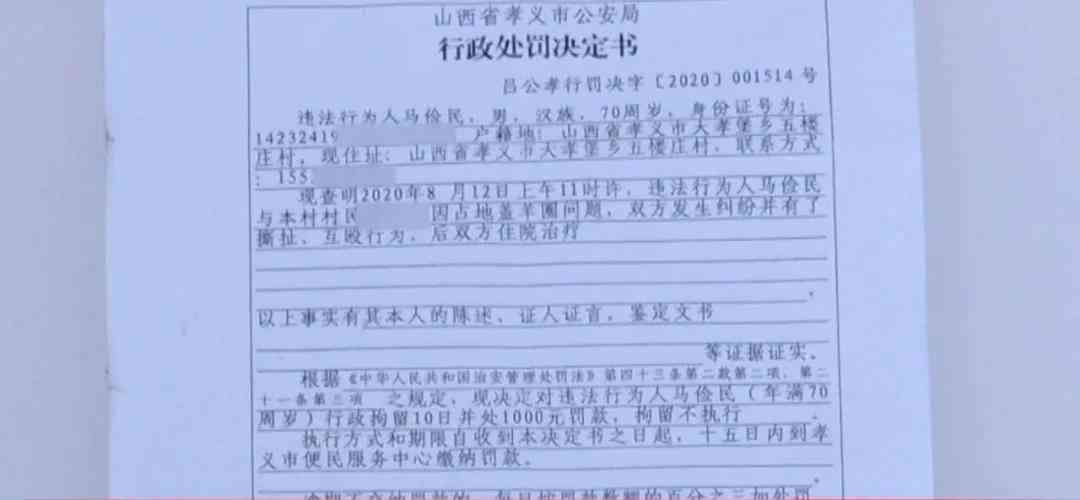 山西省孝义市公安局
行政处罚决定书
吕公孝行罚决字〔2020〕001514号
违法行为人马俭民，男，汉族，70周岁，身份证号为：
14232419 户籍地：山西省孝义市大孝堡乡五楼
庄村，现住址：山西省孝义市大孝堡乡五楼庄村，联系方式
：155
现查明2020年8月12日上午11时许，违法行为人马俭民
与本村村民 因占地盖羊圈问题，双方发生纠纷并有了
撕扯、互殴行为，后双方住院治疗
。
以上事实有其本人的陈述、证人证言，鉴定文书
等证据证实。
根据《中华人民共和国治安管理处罚法》第四十三条第二款第二项、第二
十一条第三项 之规定，现决定对违法行为人马俭民（年满70
周岁）行政拘留10日并处1000元罚款，拘留不执行 。
执行方式和期限自收到本决定书之日起，十五日内到孝
义市便民服务中心缴纳罚款。
。
逾期不交纳罚款的，每日按罚款数额的百分之三加处罚